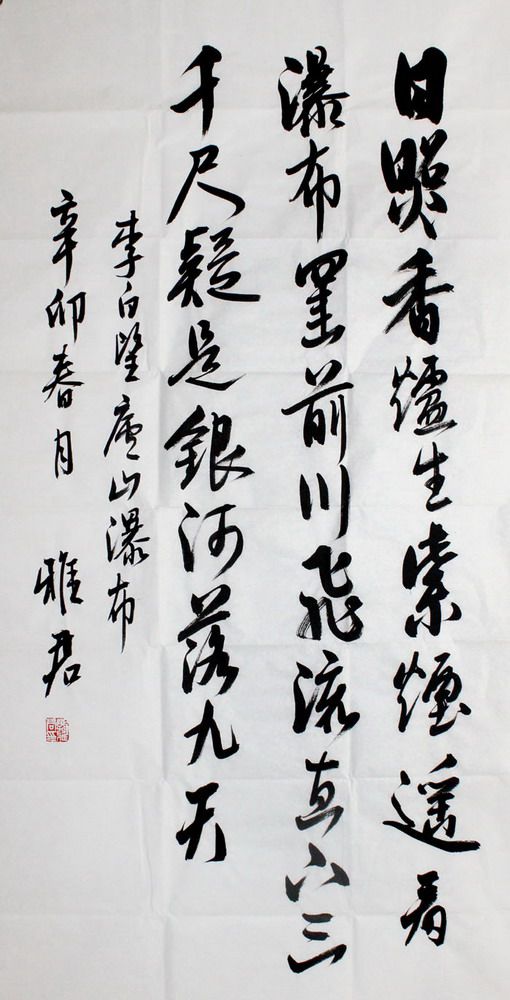 日照香爐生紫煙遙看
瀑布罣前川飛流直下三
千尺疑是銀河落九天
李白望廬山瀑布
辛卯春月 雅君